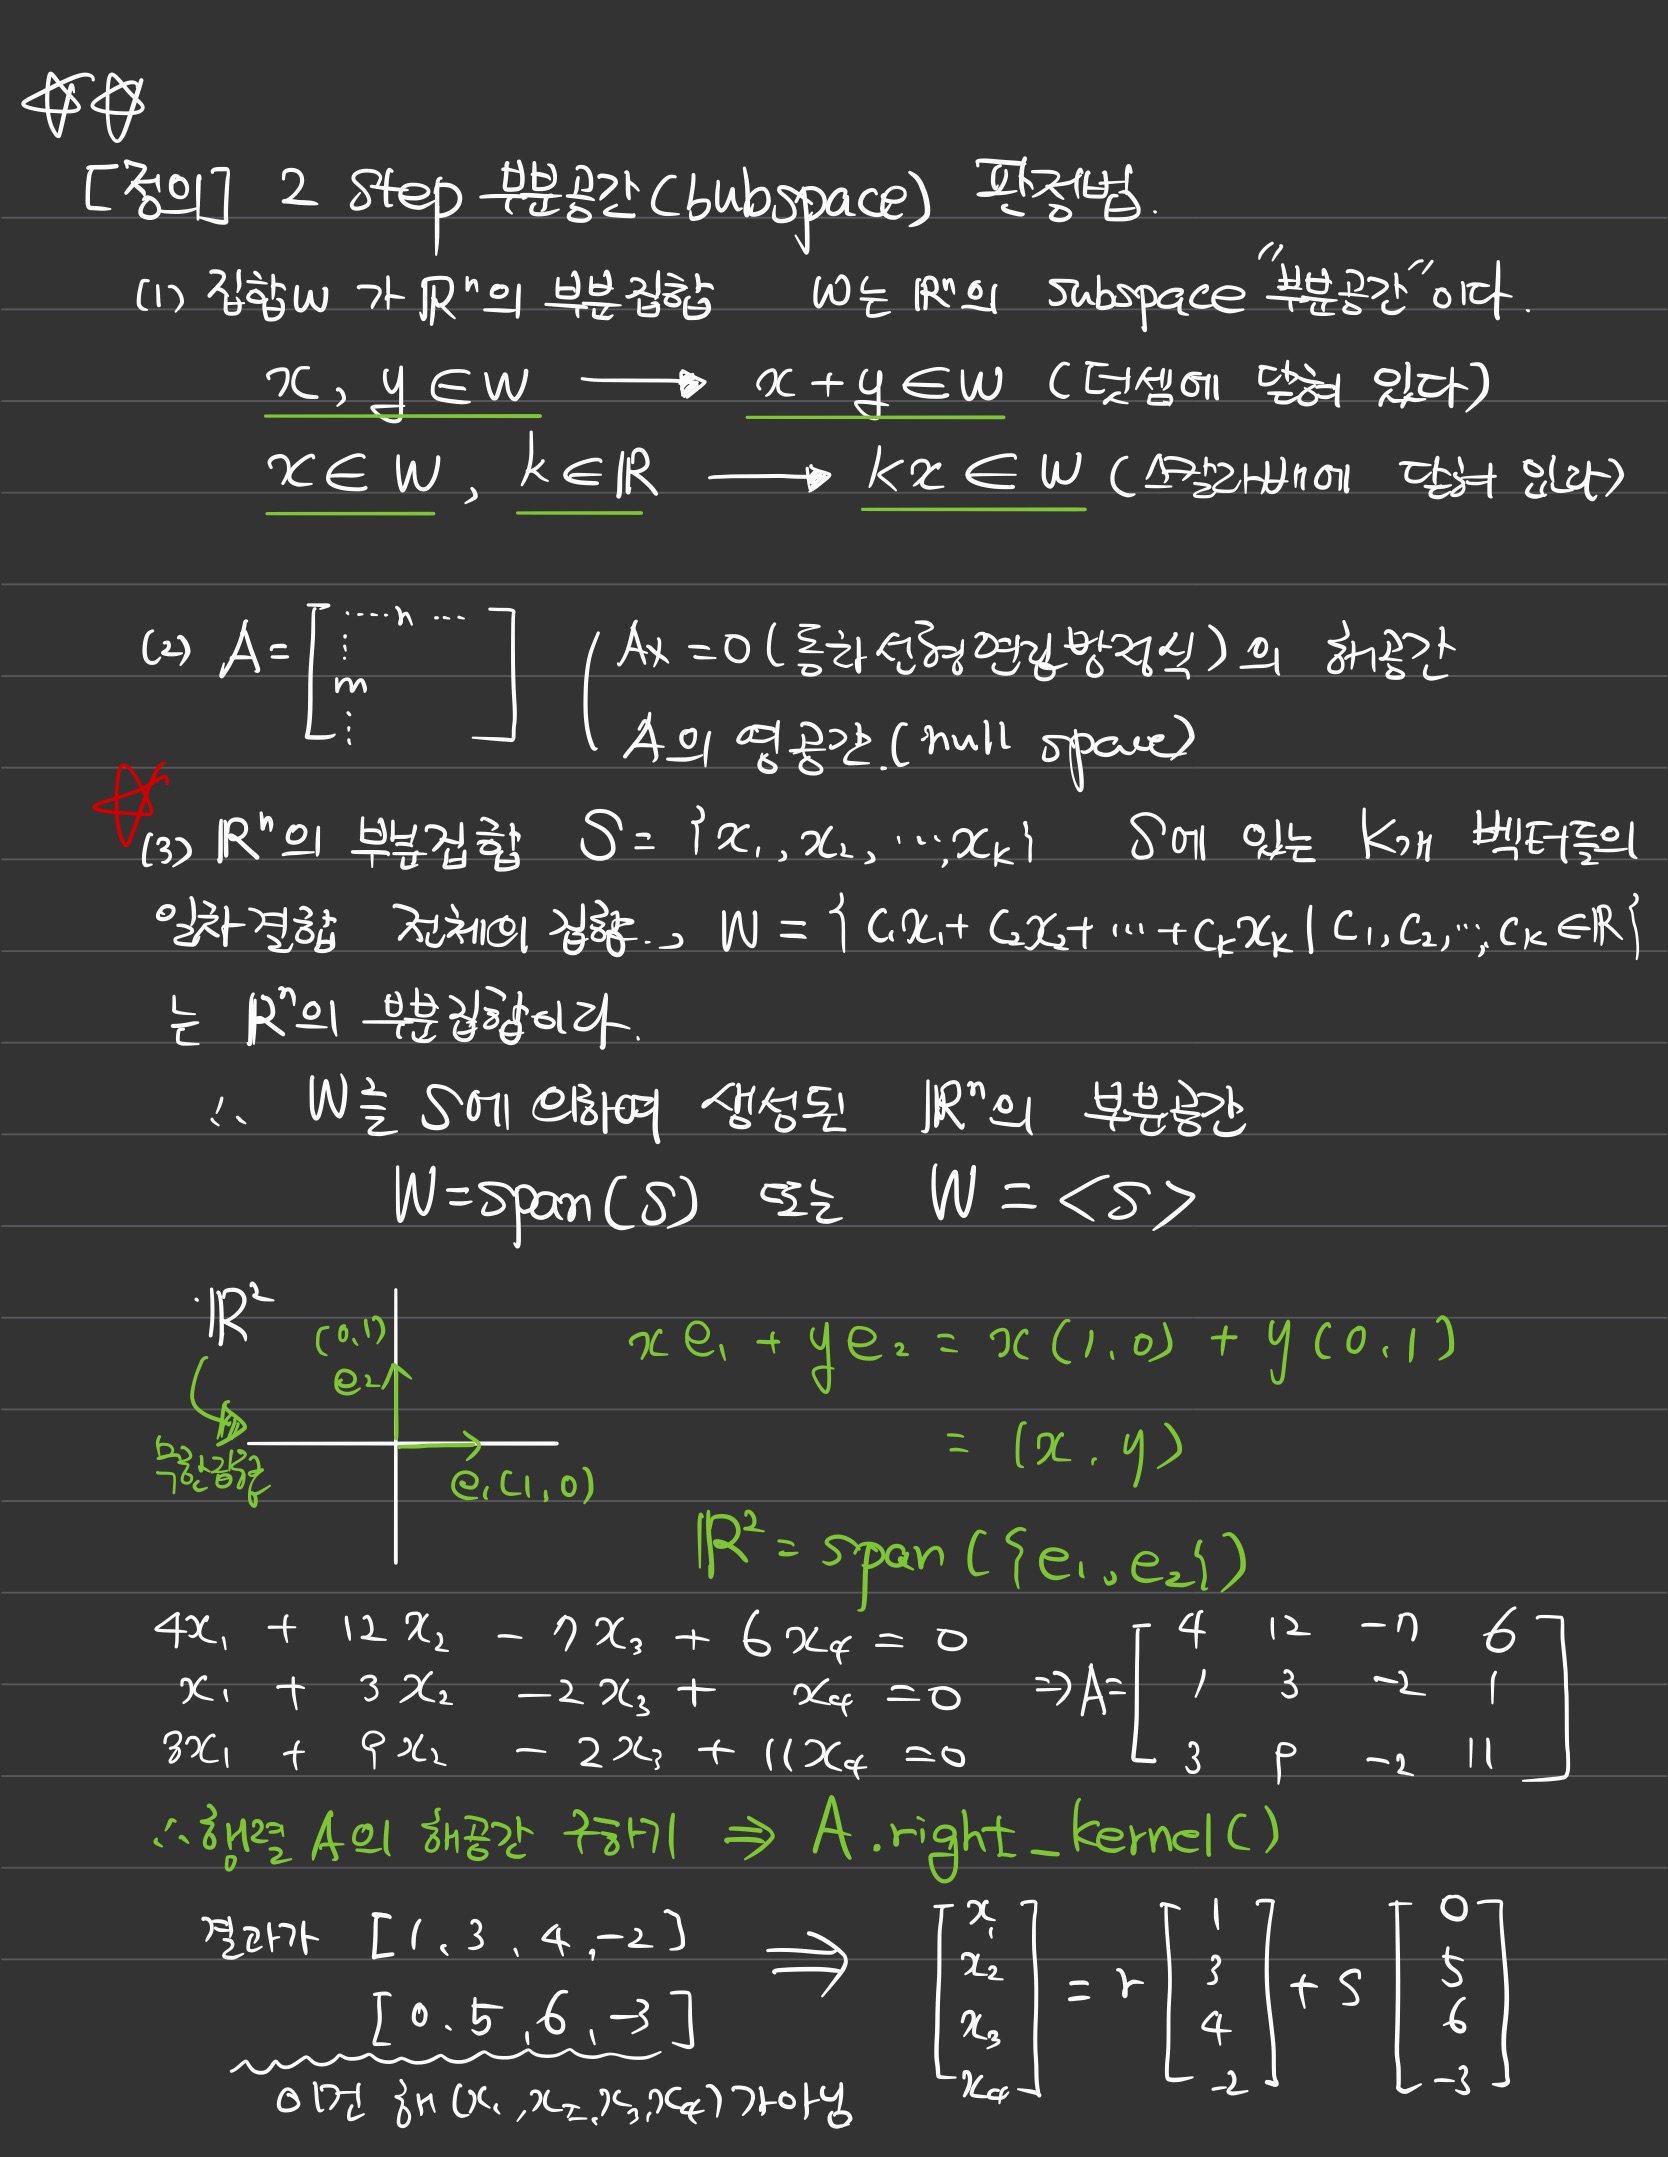 [정의] 2 Step 부분공간(subspace) 판정법.
(1) 집합W 가 ℝⁿ의 부분집합 W는 ℝⁿ의 subspace "부분공간"이다.
x, y ∈ W → x+y ∈ W (덧셈에 닫혀 있다)
x ∈ W, k ∈ ℝ → kx ∈ W (스칼라배에 닫혀 있다)
(2) A = [ ·····n ··· ⋮ m ⋮ ] ( Ax = 0 (동차 선형연립방정식)의 해공간
A의 영공간.(null space)
(3) ℝⁿ의 부분집합 S = {x₁, x₂, ···, xₖ} S에 있는 K개 벡터들의
일차결합 전체의 집합., W = {c₁x₁ + c₂x₂ + ··· + cₖxₖ | c₁, c₂, ···, cₖ ∈ ℝ}
는 ℝⁿ의 부분집합이다.
∴ W를 S에 의하여 생성된 ℝⁿ의 부분공간
W = span(S) 또는 W = <S>
·ℝ²
(0,1)
e₂
무한집합
e₁(1,0)
xe₁ + ye₂ = x(1,0) + y(0,1)
= (x, y)
ℝ² = span({e₁, e₂})
4x₁ + 12x₂ - 7x₃ + 6x₄ = 0
x₁ + 3x₂ - 2x₃ + x₄ = 0
3x₁ + 9x₂ - 2x₃ + 11x₄ = 0
⇒ A = [ 4 12 -7 6
1 3 -2 1
3 9 -2 11 ]
∴ 행렬 A의 해공간 구하기 ⇒ A.right_kernel()
결과가 [1, 3, 4, -2]
[0, 5, 6, -3]
이건 해 (x₁, x₂, x₃, x₄)가 아님
⇒ [ x₁ x₂ x₃ x₄ ] = r [ 1 3 4 -2 ] + s [ 0 5 6 -3 ]